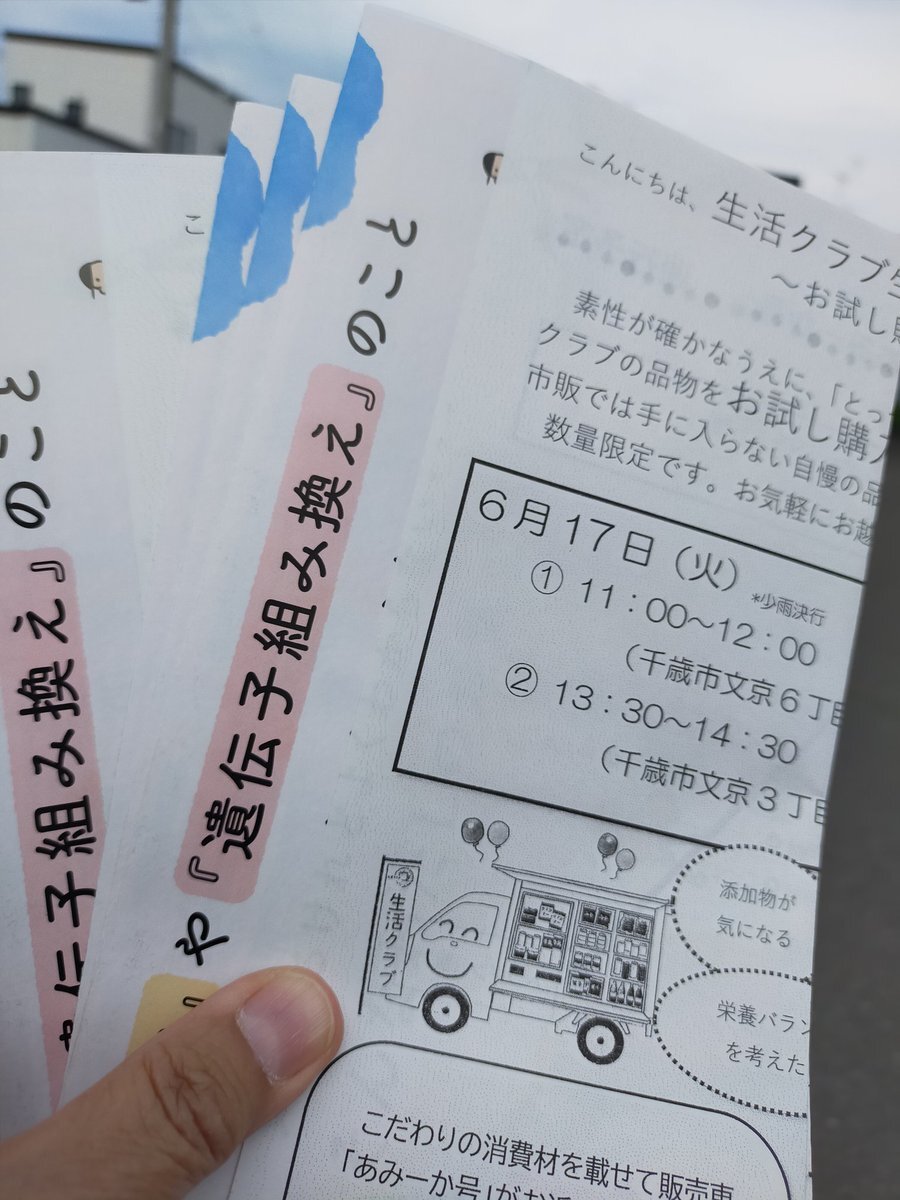 こんにちは、生活クラブ生
～お試し
素性が確かなうえに、「とっ
クラブの品物をお試し購入
市販では手に入らない自慢の品
数量限定です。お気軽にお越
6月17日（火）
*少雨決行
① 11：00～12：00
（千歳市文京6丁目
② 13：30～14：30
（千歳市文京3丁目
生活クラブ
添加物が
気になる
栄養バラン
を考えた
こだわりの消費材を載せて販売車
「あみーか号」がお近
や『遺伝子組み換え』のこと
伝子組み換え』のこと
こ